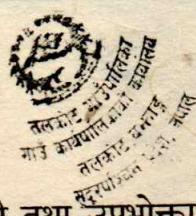 तलकोट गाउँपालिका
गाउँ कार्यपालिकाको कार्यालय
तलकोट बझाङ्ग
सुदूरपश्चिम प्रदेश, नेपाल
तथा उपभोक्ता